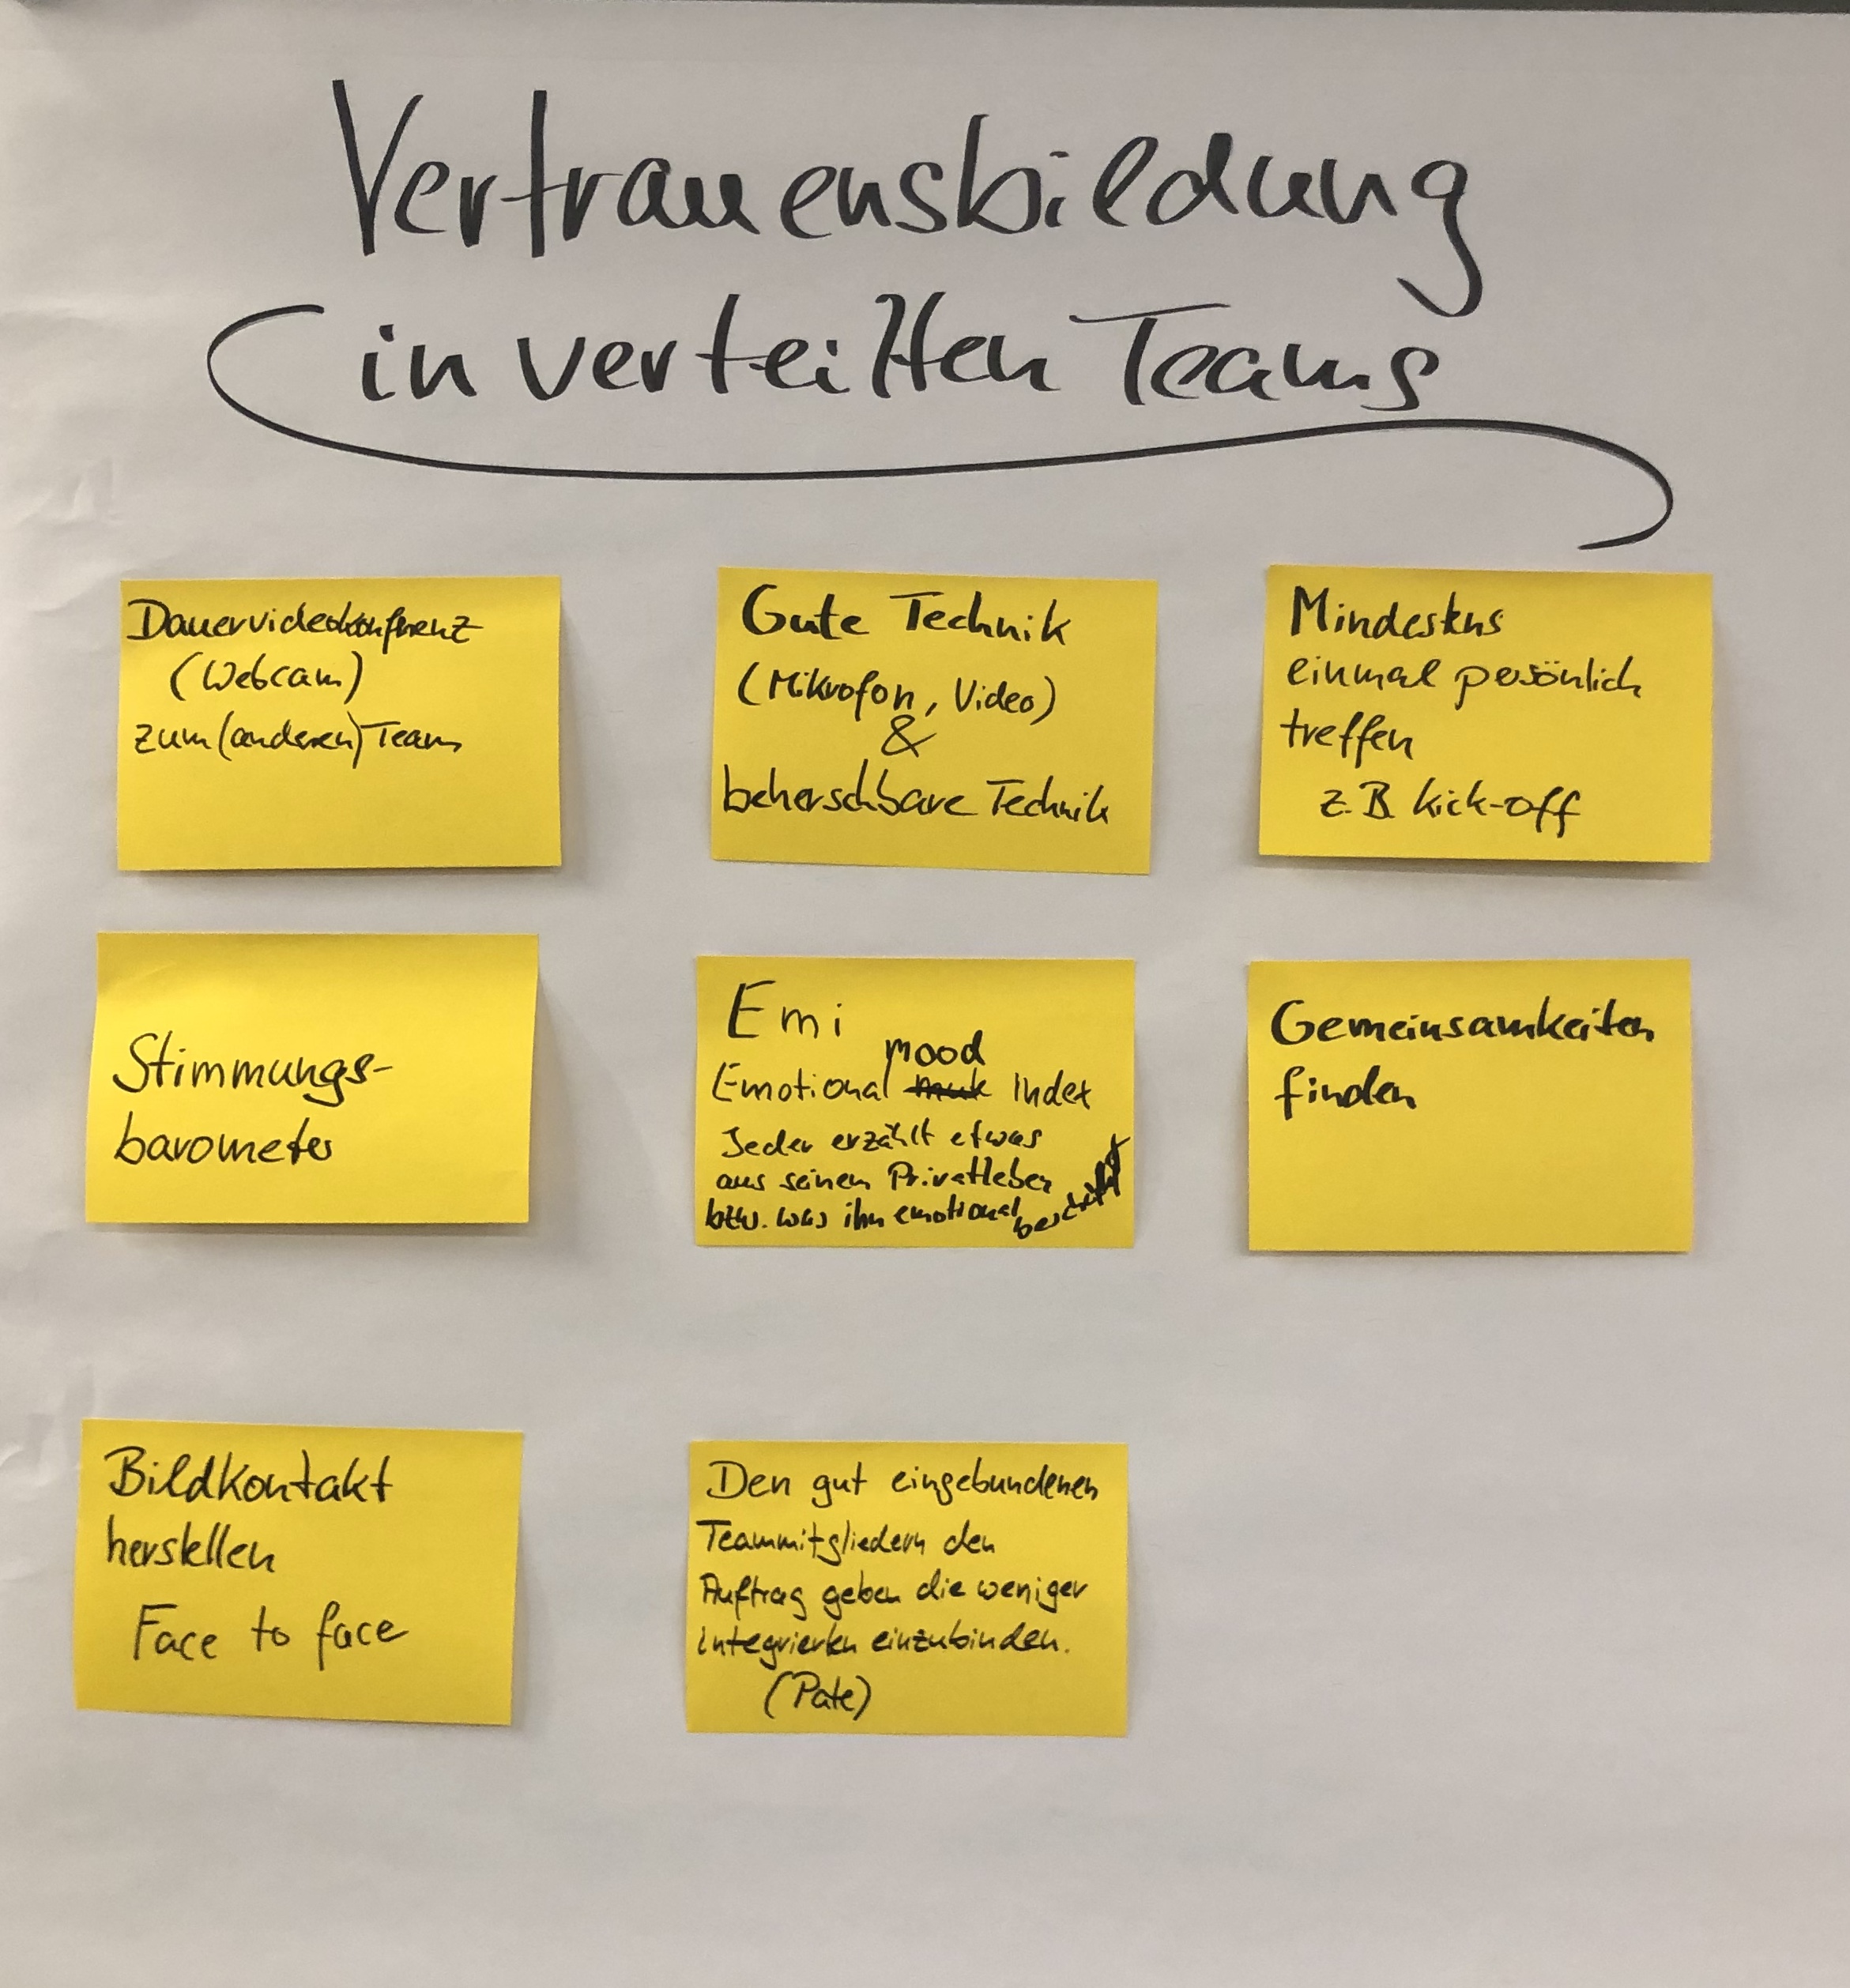 Vertrauensbildung
in verteilten Teams
Dauervideokonferenz
(Webcam)
zum (anderen) Team
Gute Technik
(Mikrofon, Video)
&
beherschbare Technik
Mindestens
einmal persönlich
treffen
z.B. kick-off
Stimmungs-
barometer
Emi
mood
Emotional Index
Jeder erzählt etwas
aus seinem Privatleben
bzw. was ihn emotional beschäftigt
Gemeinsamkeiten
finden
Bildkontakt
herstellen
Face to face
Den gut eingebundenen
Teammitgliedern den
Auftrag geben die weniger
integrierten einzubinden.
(Pate)